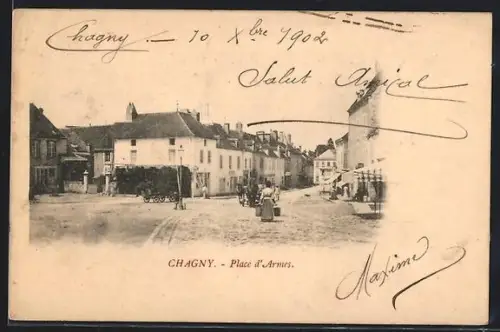 Chagny — 10 Xbre 1902
Salut Amical
CHAGNY. - Place d'Armes.
Maxime